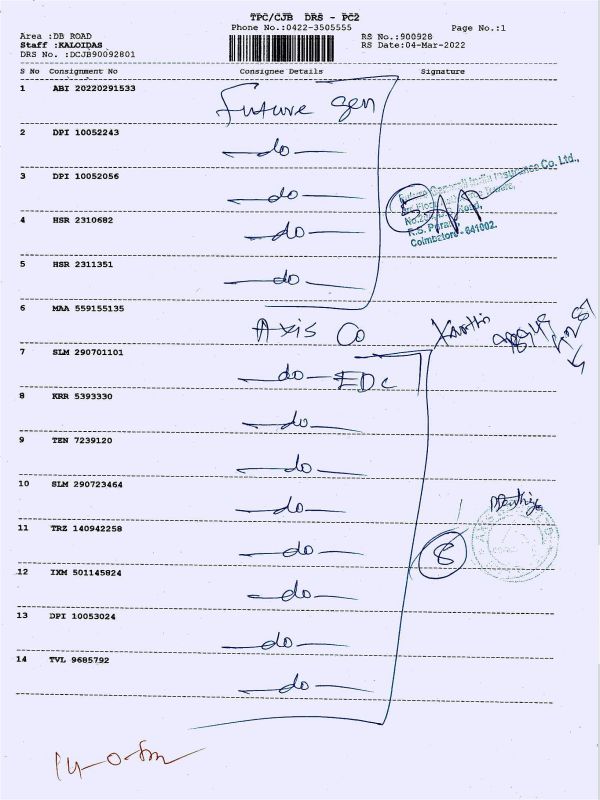 TPC/CJB DRS - PC2
Phone No.:0422-3505555
Page No.:1
Area :DB ROAD
RS No.:900928
Staff :KALOIDAS
RS Date:04-Mar-2022
DRS No. :DCJB90092801
S No Consignment No Consignee Details Signature
1 ABI 20220291533
Future Gen
2 DPI 10052243
-do-
3 DPI 10052056
-do-
Future Generali India Insurance Co. Ltd.,
4 HSR 2310682
-do-
5
R.S. Puram,
Coimbatore - 641002.
5 HSR 2311351
-do-
6 MAA 559155135
Axis Co
7 SLM 290701101
-do- EDC
8 KRR 5393330
-do-
9 TEN 7239120
-do-
10 SLM 290723464
-do-
11 TRZ 140942258
-do-
8
12 IXM 501145824
-do-
13 DPI 10053024
-do-
14 TVL 9685792
-do-